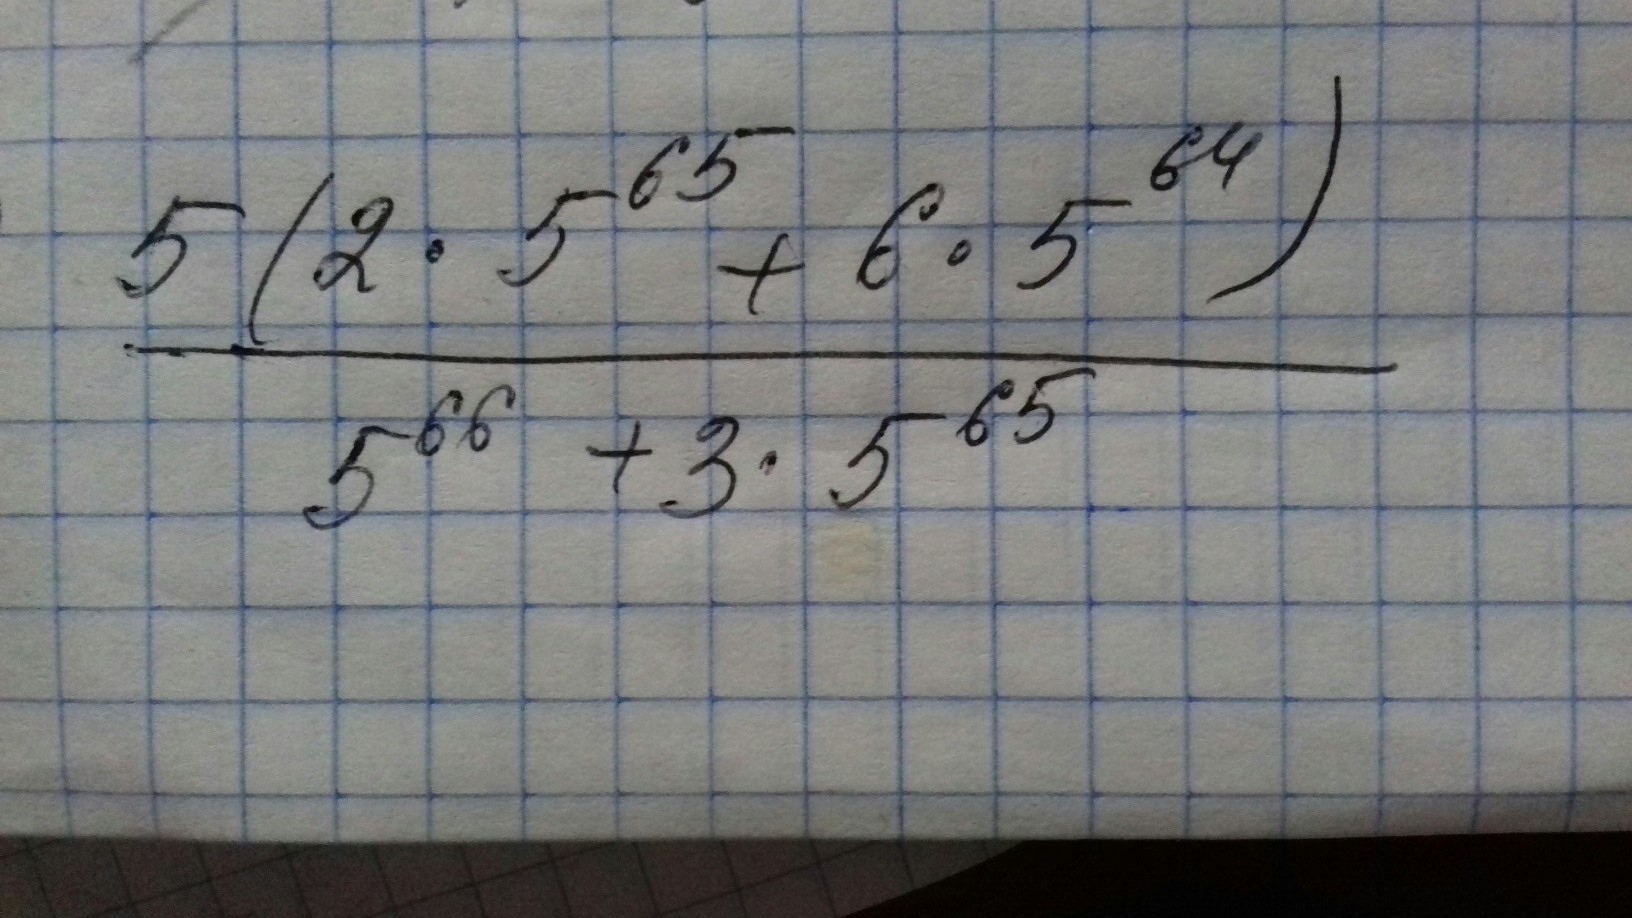 5(2·5^65 + 6·5^64)
5^66 + 3·5^65